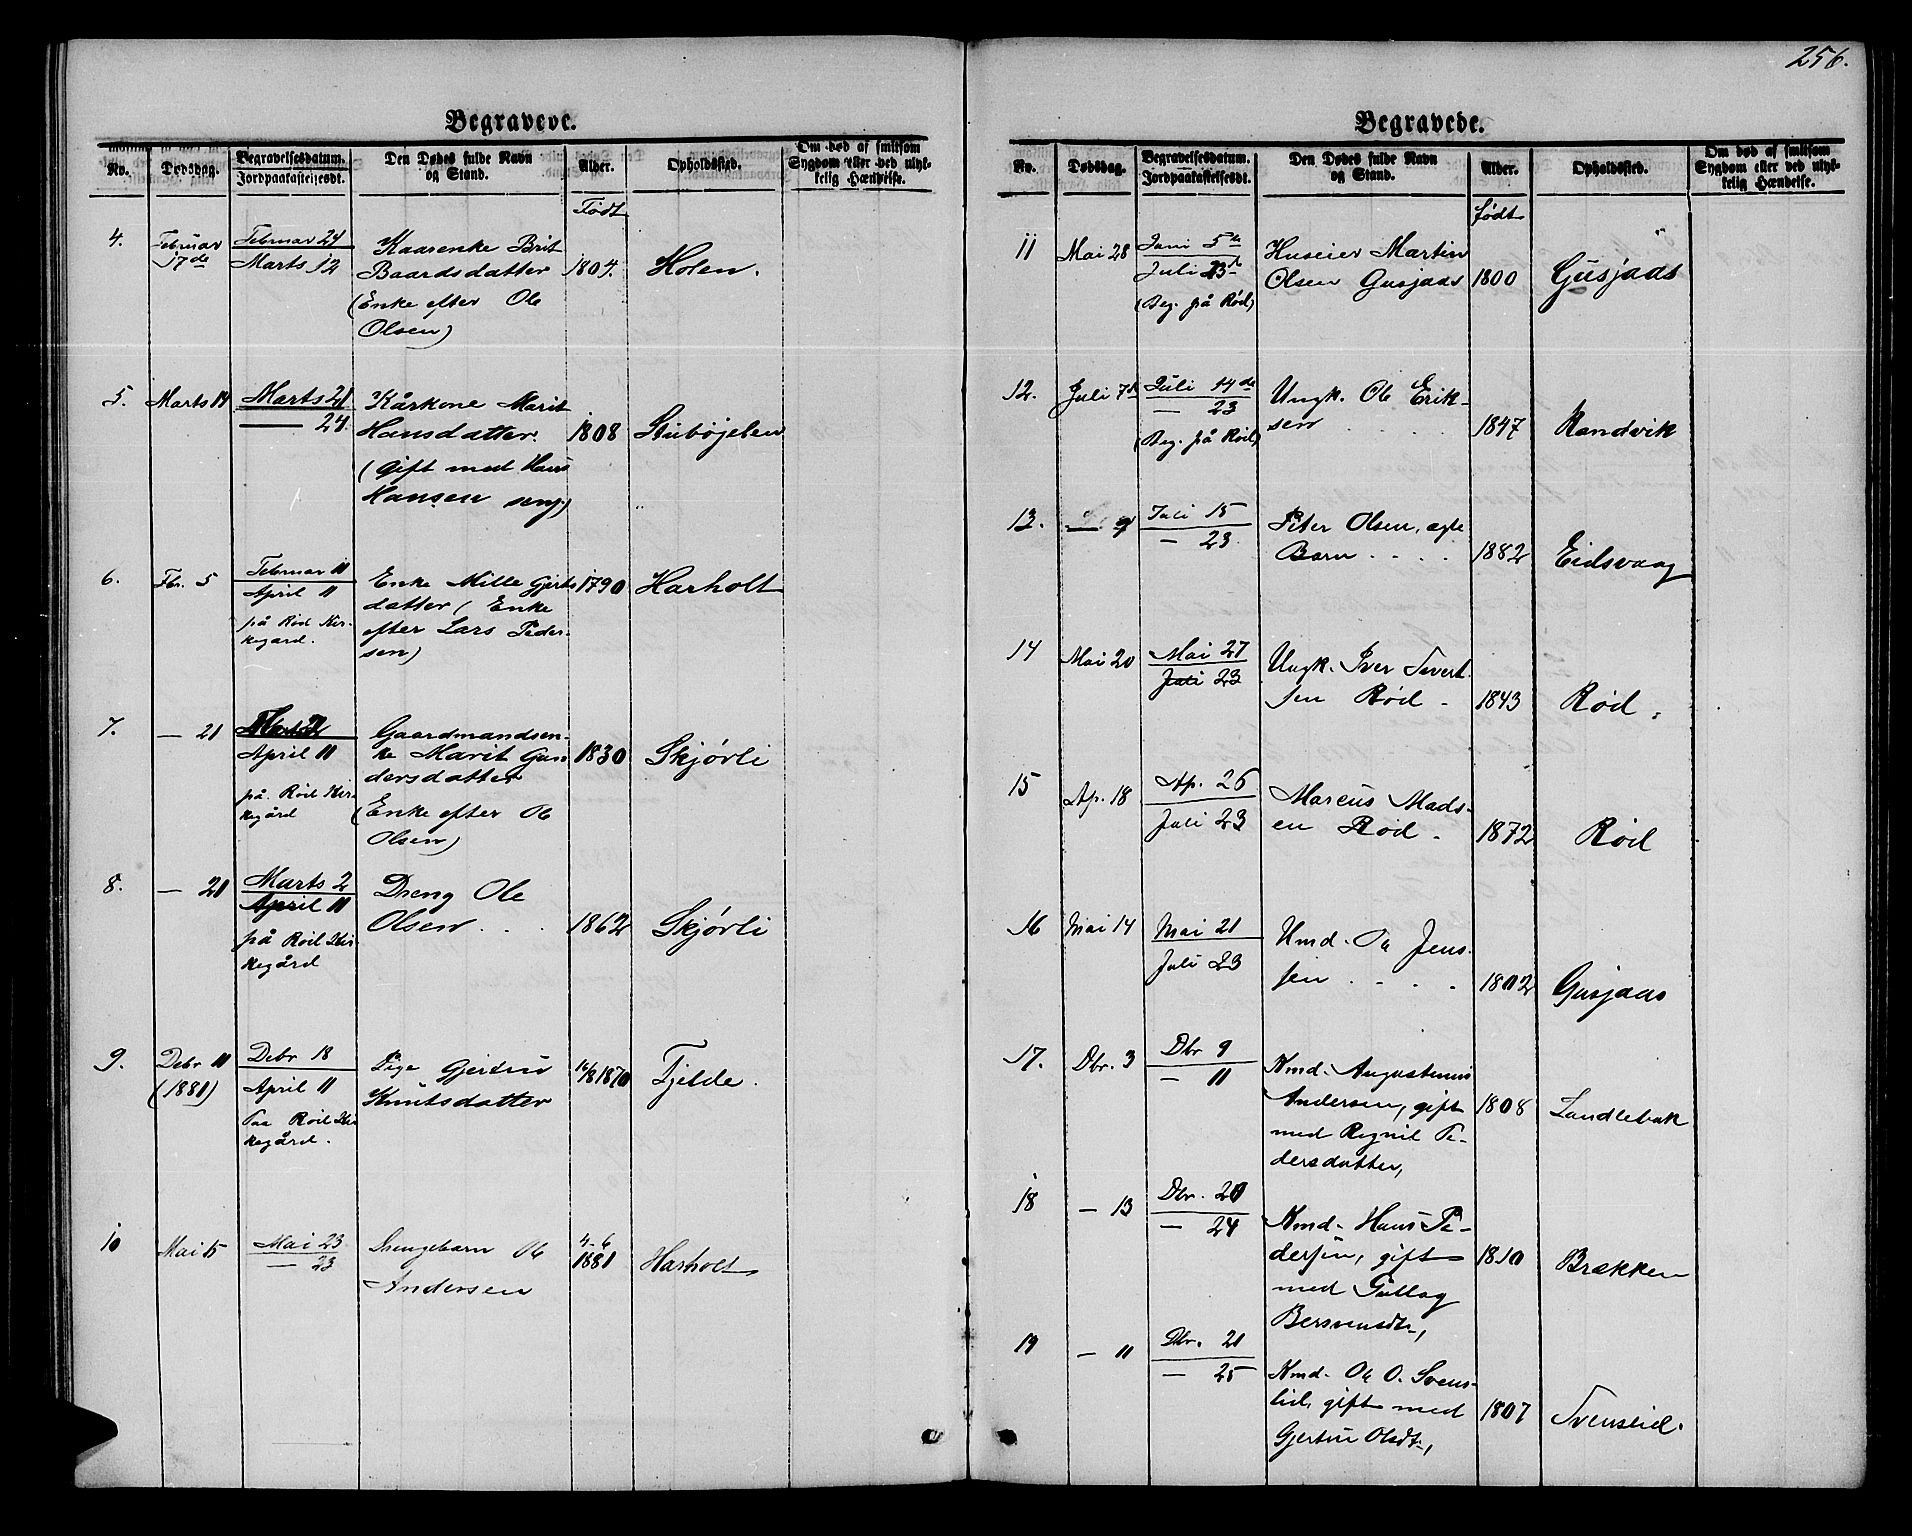 256.
Begravede.
No.
Dødsdag.
Begravelsesdatum.
Jordpaakastelsesdt.
Den Dødes fulde Navn
og Stand.
Alder.
Opholdssted.
Om død af smitsom
Sygdom eller ved ulyk-
kelig Hændelse.
Født
4.
Februar
17de
Februar 24
Marts 12
Kaarenke Brit
Baardsdatter
(Enke efter Ole
Olsen)
1804.
Holen.
5.
Marts 14
Marts 21
— 24.
Kårkone Marit
Hansdatter.
(gift med Hans
Hansen
1808
Stubøjelen
6.
Fbr. 5
Februar 11
April 11
på Rød Kir-
kegård.
Enke Mille Gjerts
datter (Enke
efter Lars Peder-
sen)
1790
Harholt
7.
— 21
April 11
på Rød Kir-
kegård
Gaardmandsen-
ke Marit Gun
dersdatter
(Enke efter Ole
Olsen)
1830
Skjørli
8.
— 21
Marts 2
April 11
på Rød Kir
kegård
Dreng Ole
Olsen . .
1862
Skjørli
9.
Debr 11
(1881)
Debr 18
April 11
Paa Rød Kir
kegård.
Pige Gjertru
Knutsdatter
16/8 1870
Fjelde.
10
Mai 15
Mai 23
— 23
Drengebarn Ole
Andersen
4-6
1881
Harholt
Begravede.
No.
Dødsdag.
Begravelsesdatum.
Jordpaakastelsesdt.
Den Dødes fulde Navn
og Stand.
Alder.
Opholdssted.
Om død af smitsom
Sygdom eller ved ulyk-
kelig Hændelse.
født
11
Mai 28
Juni 5te
Juli 23d
(Beg. på Rød)
Huseier Martin
Olsen Gusjaas
1800
Gusjaas
12.
Juli 7d
Juli 14de
— 23
(Beg. på Rød)
Ungk. Ole Erik-
sen . . . .
1847
Randvik
13.
— 9
Juli 15
— 23.
Peter Olsen, ægte
Barn . . . .
1882
Eidsvaag
14
Mai 20
Mai 27
Juli 23
Ungk. Iver Sivert
sen Rød -
1843
Rød.
15
Ap. 18
Ap. 26
Juli 23
Marcus Mads-
en Rød -
1872
Rød
16
Mai 14
Mai 21
Juli 23
Hmd. Ole Jens-
sen . . . .
1802
Gusjaas
17.
Dbr. 3
Dbr 9
— 11
Kmd. Augustinus
Andersen, gift
med Regnil Pe-
dersdatter,
1808
Sandlebak
18
— 13
Dbr. 20
— 24
Kmd. Hans Pe-
dersen, gift
med Gullog
Bersvensdtr,
1810
Brækken
19
— 11
Dbr. 21
— 25
Kmd. Ole O. Svens-
lid, gift med
Gjertru Olsdtr,
1807
Svenslid.